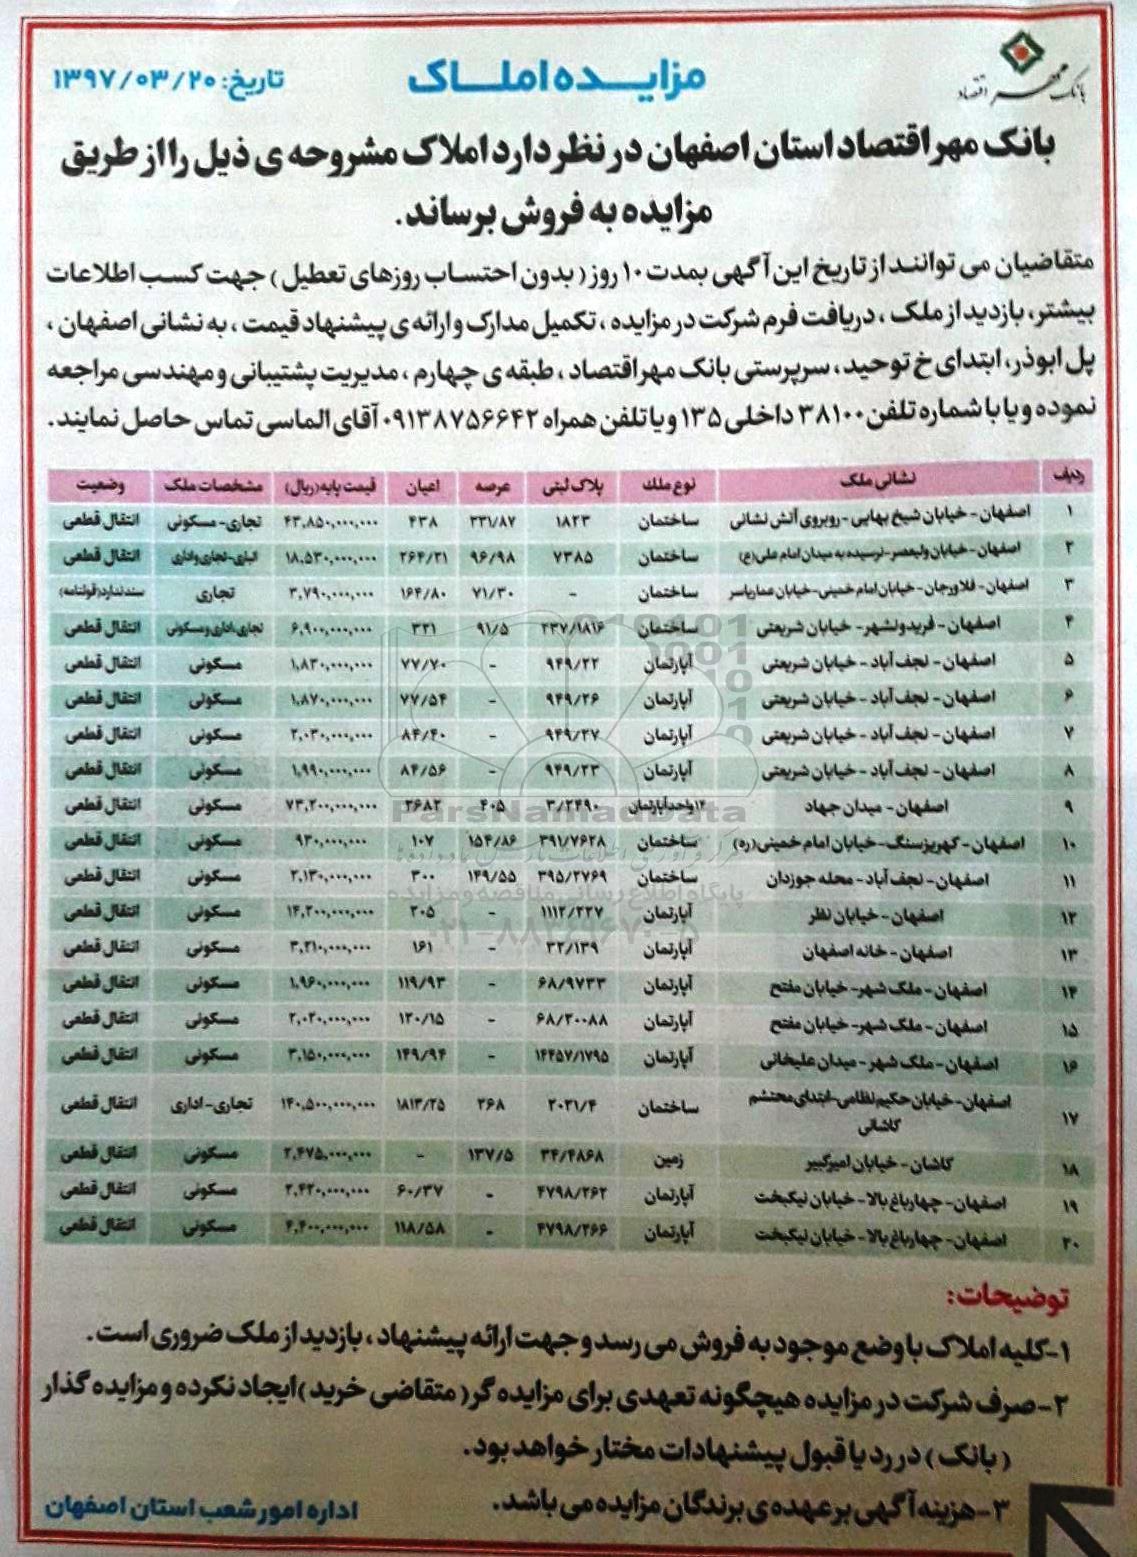 بانک مهر اقتصاد
مزایده املاک
تاریخ: ۱۳۹۷/۰۳/۲۰
بانک مهر اقتصاد استان اصفهان در نظر دارد املاک مشروحه ی ذیل را از طریق
مزایده به فروش برساند.
متقاضیان می توانند از تاریخ این آگهی بمدت ۱۰ روز ( بدون احتساب روزهای تعطیل ) جهت کسب اطلاعات
بیشتر، بازدید از ملک ، دریافت فرم شرکت در مزایده ، تکمیل مدارک و ارائه ی پیشنهاد قیمت ، به نشانی اصفهان ،
پل ابوذر، ابتدای خ توحید، سرپرستی بانک مهر اقتصاد ، طبقه ی چهارم ، مدیریت پشتیبانی و مهندسی مراجعه
نموده و یا با شماره تلفن ۳۸۱۰۰ داخلی ۱۳۵ و یا تلفن همراه ۰۹۱۳۸۷۵۶۶۴۲ آقای الماسی تماس حاصل نمایند.
ردیف نشانی ملک نوع ملك پلاک ثبتی عرصه اعیان قیمت پایه(ریال) مشخصات ملک وضعیت
۱ اصفهان - خیابان شیخ بهایی - روبروی آتش نشانی ساختمان ۱۸۲۳ ۲۳۱/۸۷ ۴۳۸ ۴۳,۸۵۰,۰۰۰,۰۰۰ تجاری-مسکونی انتقال قطعی
۲ اصفهان - خیابان ولیعصر- نرسیده به میدان امام علی(ع) ساختمان ۷۳۸۵ ۹۶/۹۸ ۲۶۴/۲۱ ۱۸,۵۳۰,۰۰۰,۰۰۰ انباری-تجاری واداری انتقال قطعی
۳ اصفهان - فلاورجان - خیابان امام خمینی- خیابان عمار یاسر ساختمان - ۷۱/۳۰ ۱۶۴/۸۰ ۳,۷۹۰,۰۰۰,۰۰۰ تجاری سند ندارد(قولنامه)
۴ اصفهان - فریدونشهر - خیابان شریعتی ساختمان ۲۳۷/۱۸۱۶ ۹۱/۵ ۳۲۱ ۶,۹۰۰,۰۰۰,۰۰۰ تجاری،اداری ومسکونی انتقال قطعی
۵ اصفهان - نجف آباد - خیابان شریعتی آپارتمان ۹۴۹/۲۲ - ۷۷/۷۰ ۱,۸۳۰,۰۰۰,۰۰۰ مسکونی انتقال قطعی
۶ اصفهان - نجف آباد - خیابان شریعتی آپارتمان ۹۴۹/۲۶ - ۷۷/۵۴ ۱,۸۷۰,۰۰۰,۰۰۰ مسکونی انتقال قطعی
۷ اصفهان - نجف آباد - خیابان شریعتی آپارتمان ۹۴۹/۲۷ - ۸۴/۴۰ ۲,۰۳۰,۰۰۰,۰۰۰ مسکونی انتقال قطعی
۸ اصفهان - نجف آباد - خیابان شریعتی آپارتمان ۹۴۹/۲۳ - ۸۴/۵۶ ۱,۹۹۰,۰۰۰,۰۰۰ مسکونی انتقال قطعی
۹ اصفهان - میدان جهاد ۱۴واحدآپارتمان ۳/۲۴۹۰ ۴۰۵ ۲۶۸۲ ۷۳,۲۰۰,۰۰۰,۰۰۰ مسکونی انتقال قطعی
۱۰ اصفهان - کهریزسنگ - خیابان امام خمینی(ره) ساختمان ۳۹۱/۷۶۲۸ ۱۵۴/۸۶ ۱۰۷ ۹۳۰,۰۰۰,۰۰۰ مسکونی انتقال قطعی
۱۱ اصفهان - نجف آباد - محله جوزدان ساختمان ۳۹۵/۲۷۶۹ ۱۴۹/۵۵ ۳۰۰ ۲,۱۳۰,۰۰۰,۰۰۰ مسکونی انتقال قطعی
۱۲ اصفهان - خیابان نظر آپارتمان ۱۱۱۲/۲۲۷ - ۲۰۵ ۱۴,۲۰۰,۰۰۰,۰۰۰ مسکونی انتقال قطعی
۱۳ اصفهان - خانه اصفهان آپارتمان ۳۲/۱۳۹ - ۱۶۱ ۳,۲۱۰,۰۰۰,۰۰۰ مسکونی انتقال قطعی
۱۴ اصفهان - ملک شهر - خیابان مفتح آپارتمان ۶۸/۹۷۳۳ - ۱۱۹/۹۳ ۱,۹۶۰,۰۰۰,۰۰۰ مسکونی انتقال قطعی
۱۵ اصفهان - ملک شهر - خیابان مفتح آپارتمان ۶۸/۲۰۰۸۸ - ۱۲۰/۱۵ ۲,۰۲۰,۰۰۰,۰۰۰ مسکونی انتقال قطعی
۱۶ اصفهان - ملک شهر - میدان علیخانی آپارتمان ۱۴۴۵۷/۱۷۹۵ - ۱۴۹/۹۴ ۳,۱۵۰,۰۰۰,۰۰۰ مسکونی انتقال قطعی
۱۷ اصفهان - خیابان حکیم نظامی- ابتدای محتشم کاشانی ساختمان ۲۰۲۱/۴ ۲۶۸ ۱۸۱۳/۲۵ ۱۴۰,۵۰۰,۰۰۰,۰۰۰ تجاری-اداری انتقال قطعی
۱۸ کاشان - خیابان امیرکبیر زمین ۳۴/۴۸۶۸ ۱۳۷/۵ - ۲,۴۷۵,۰۰۰,۰۰۰ مسکونی انتقال قطعی
۱۹ اصفهان - چهارباغ بالا - خیابان نیکبخت آپارتمان ۴۷۹۸/۲۶۲ - ۶۰/۳۷ ۲,۴۲۰,۰۰۰,۰۰۰ مسکونی انتقال قطعی
۲۰ اصفهان - چهارباغ بالا - خیابان نیکبخت آپارتمان ۴۷۹۸/۲۶۶ - ۱۱۸/۵۸ ۴,۴۰۰,۰۰۰,۰۰۰ مسکونی انتقال قطعی
ParsNamadData
پایگاه اطلاع رسانی مناقصه و مزایده
توضیحات:
۱-کلیه املاک با وضع موجود به فروش می رسد و جهت ارائه پیشنهاد ، بازدید از ملک ضروری است.
۲-صرف شرکت در مزایده هیچگونه تعهدی برای مزایده گر ( متقاضی خرید ) ایجاد نکرده و مزایده گذار
( بانک ) در رد یا قبول پیشنهادات مختار خواهد بود.
۳-هزینه آگهی بر عهده ی برندگان مزایده می باشد.
اداره امور شعب استان اصفهان